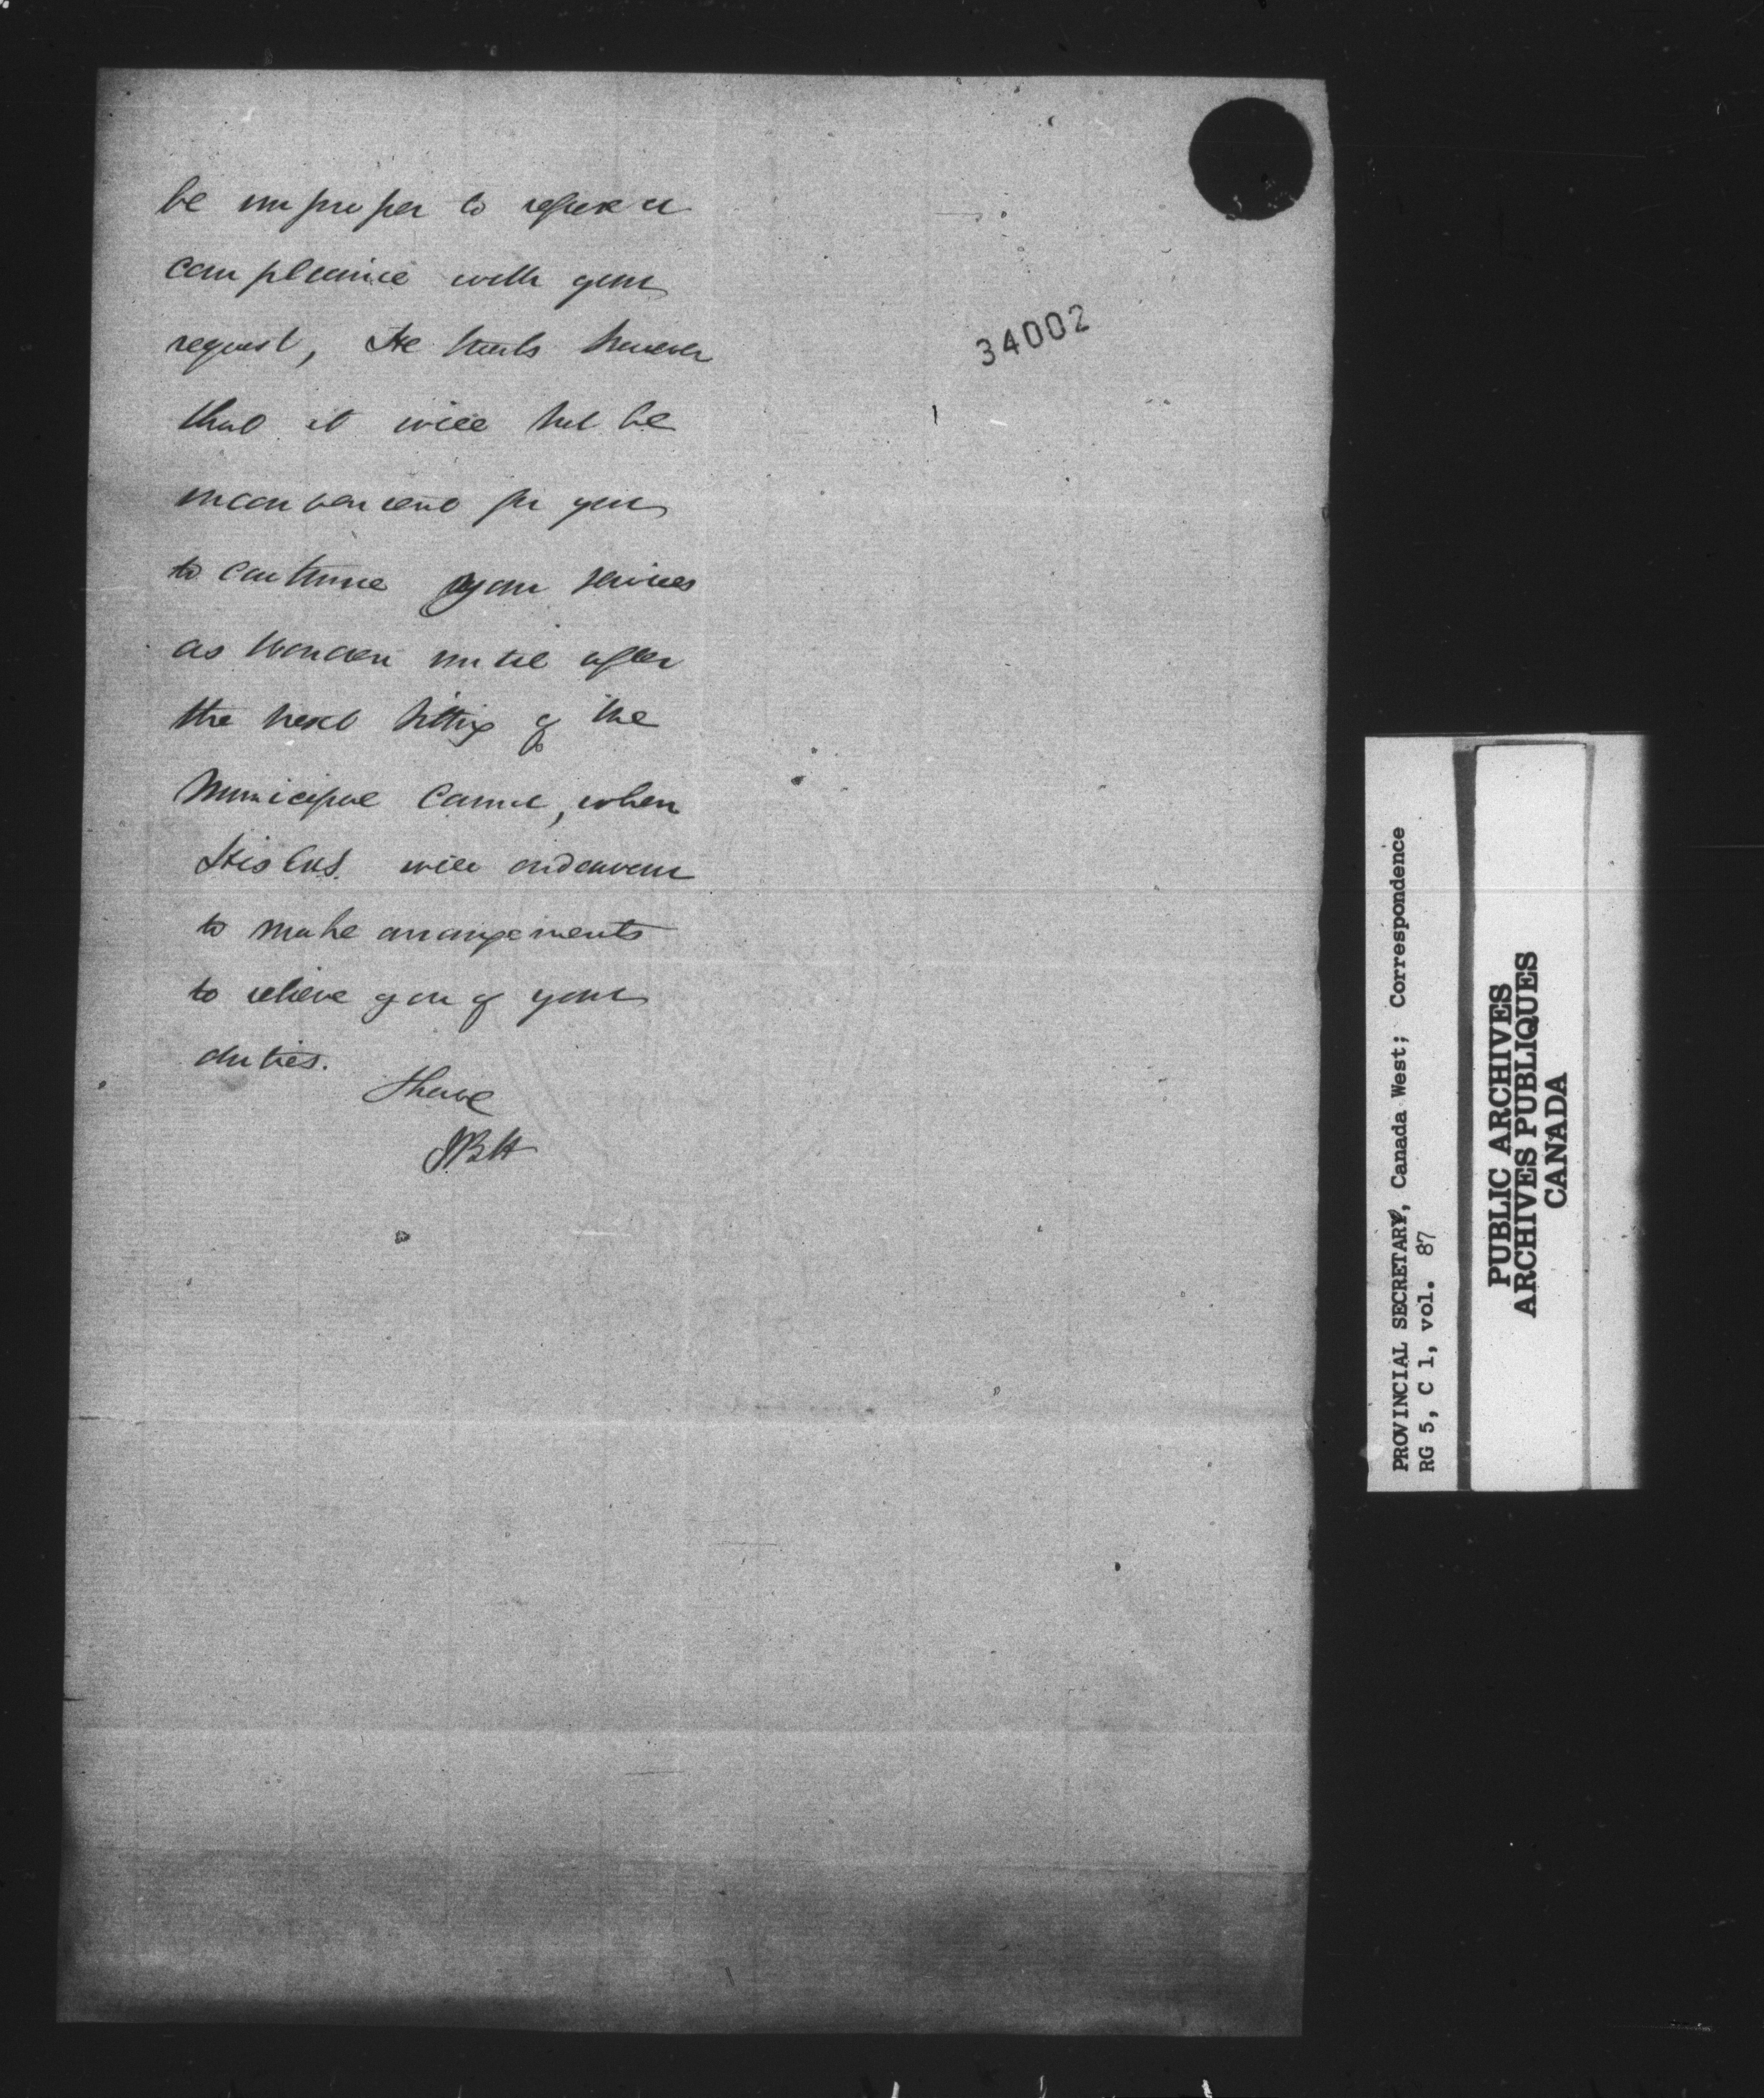 be improper to refuse a
compliance with your
request, He trusts however
that it will not be
inconvenient for you
to continue your services
as Warden until after
the next sitting of the
Municipal Council, when
His Exs. will endeavour
to make arrangements
to relieve you of your
duties.
I have
JBH
34002
PROVINCIAL SECRETARY, Canada West; Correspondence
RG 5, C 1, vol. 87
PUBLIC ARCHIVES
ARCHIVES PUBLIQUES
CANADA